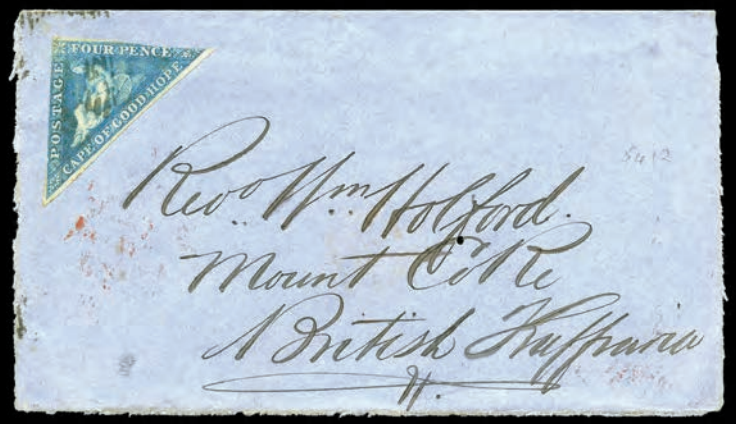 FOUR PENCE
POSTAGE
CAPE OF GOOD HOPE
5412
Revd. Wm Holford.
Mount Coke
British Kaffraria